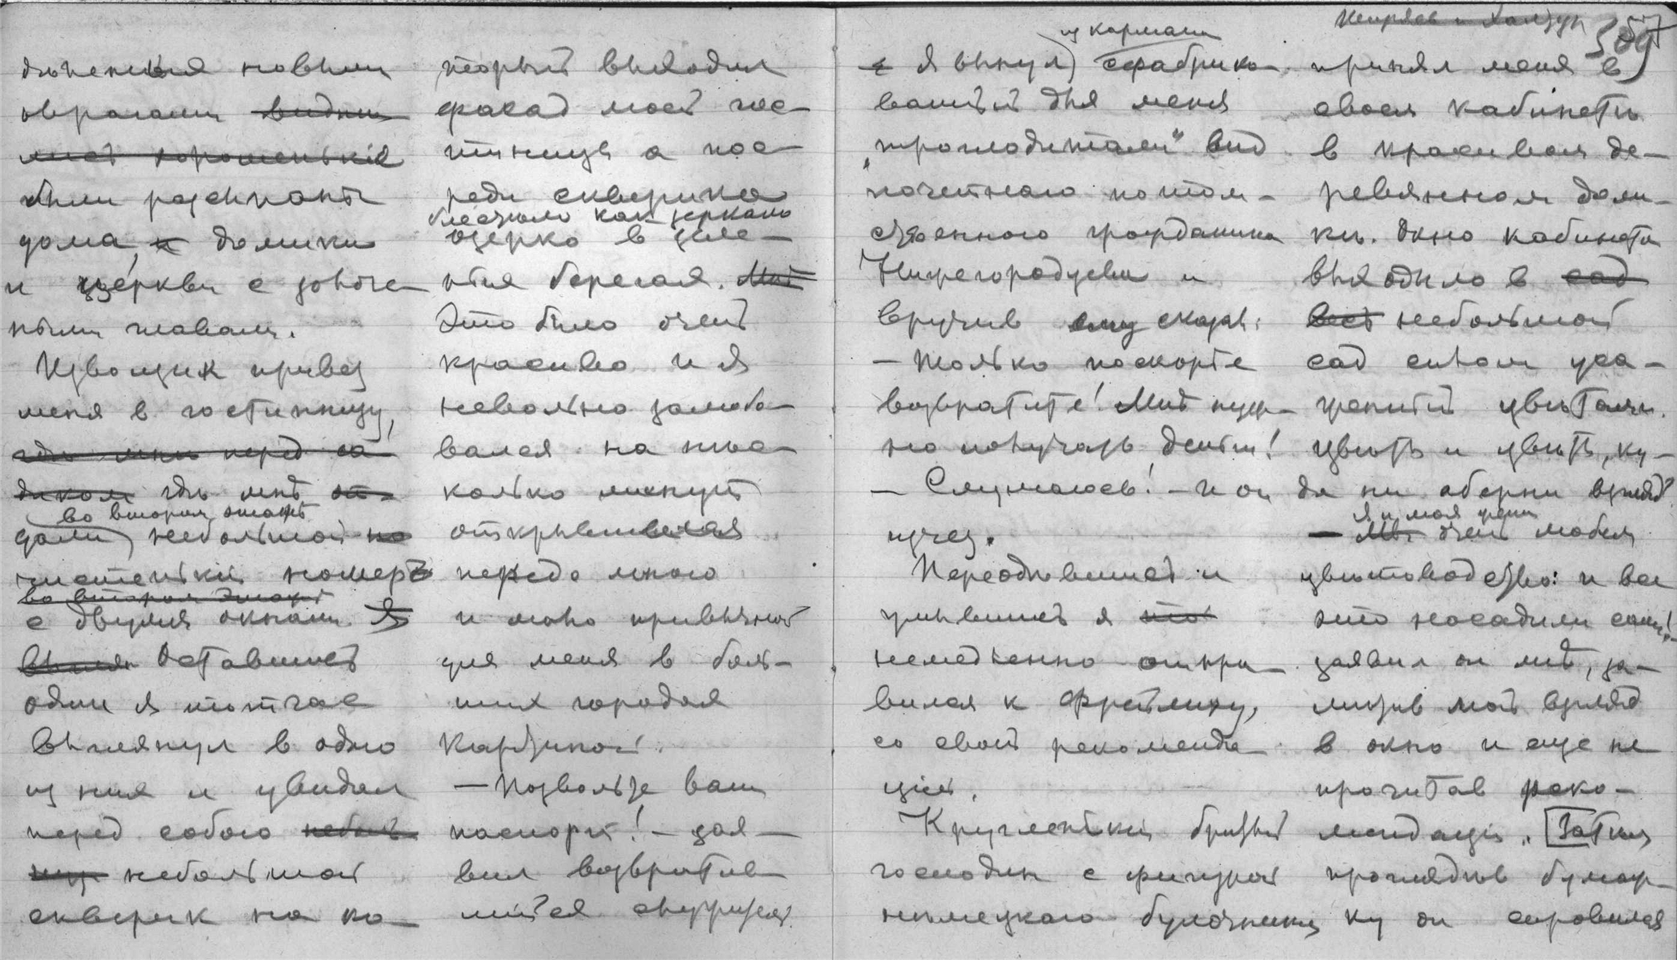 новыми
оврагами видны
хорошенькіе
были разсыпаны
дома, и домики
и церкви с золоче-
ными главами.
Извощик привез
меня в гостинницу,
гдѣ мнѣ перед са
гдѣ мнѣ от-
во втором этажѣ
дали небольшой но
чистенькій номер
во втором этаже
с двумя окнами. Я
Оставшись
один я тотчас
выглянул в одно
из них и увидал
перед собою небол
небольшой
скверик на ко-
торый выходил
фасад моей гос-
тиницы а пос-
реди скверика
блестѣло как зеркало
озерко в зеле-
ных берегах. Мнѣ
Это было очень
красиво и я
невольно залюбо-
вался на нѣс-
колько минут
открывшеюся
передо мною
и мало привычной
для меня в боль-
ших городах
картиной.
— Позвольте ваш
паспорт! — зая-
вил возвратив-
шійся служитель.
из кармана
Я вынул сфабрико-
ванный для меня
„троглодитами" вид
почетнаго потом-
ственного гражданина
Нижегородцева и
вручив ему сказал:
— Только поскорѣе
возвратите! Мнѣ нуж-
но получать деньги!
— Слушаюсь! — и он
исчез.
Переодѣвшись и
умывшись я
немедленно отпра-
вился к Фрейлиху,
со своей рекоменда-
ціей.
Кругленькій бритый
господин с фигурой
нѣмецкаго булочника
принял меня в
своем кабинетѣ
в красивом де-
ревянном доми-
кѣ. Окно кабинета
выходило в сад
весь небольшой
сад сплошь уса-
женный цвѣтами.
Цвѣты и цвѣты, ку-
да ни оберни взгляд
я и моя жена
— Мы очень любим
цвѣтоводство: и все
это насадили сами!
заявил он мнѣ, за-
мѣтив мой взгляд
в окно и еще не
прочитав реко-
мендаціи. Затѣм
проглядѣв бумаж-
ку он справился